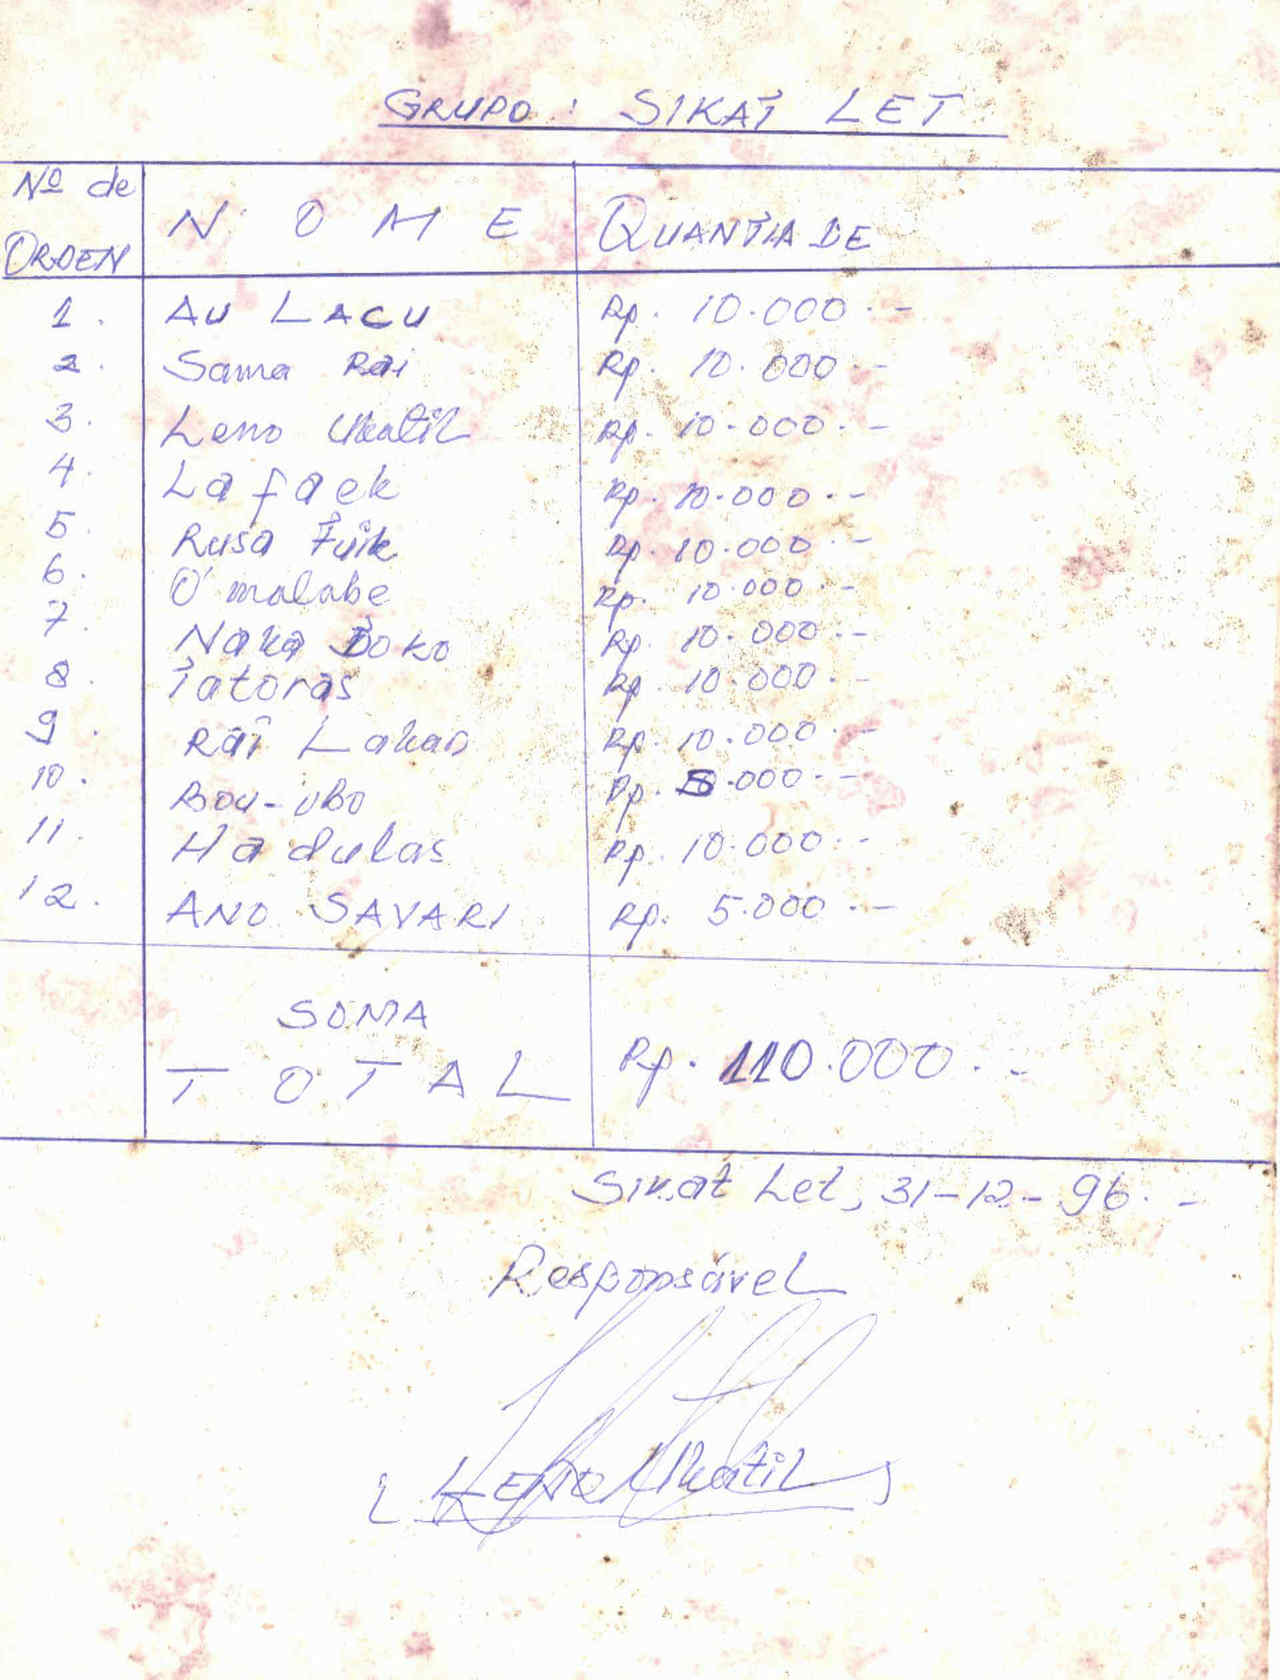 GRUPO : SIKAT LET
Nº de ORDEN NOME QUANTIA DE
1. AU LACU Rp. 10.000.-
2. Sama Rai Rp. 10.000.-
3. Leno Rp. 10.000.-
4. Lafaek Rp. 10.000.-
5. Rusa Fuik Rp. 10.000.-
6. O'malabe Rp. 10.000.-
7. Naka Doko Rp. 10.000.-
8. Tatoras Rp. 10.000.-
9. Rai Lakan Rp. 10.000.-
10. Bou-ubo Rp. 5.000.-
11. Hadulas Rp. 10.000.-
12. ANO SAVARI Rp. 5.000.-
SOMA
TOTAL Rp. 110.000.-
Sikat Let, 31-12-96.-
Responsável
( LENO )